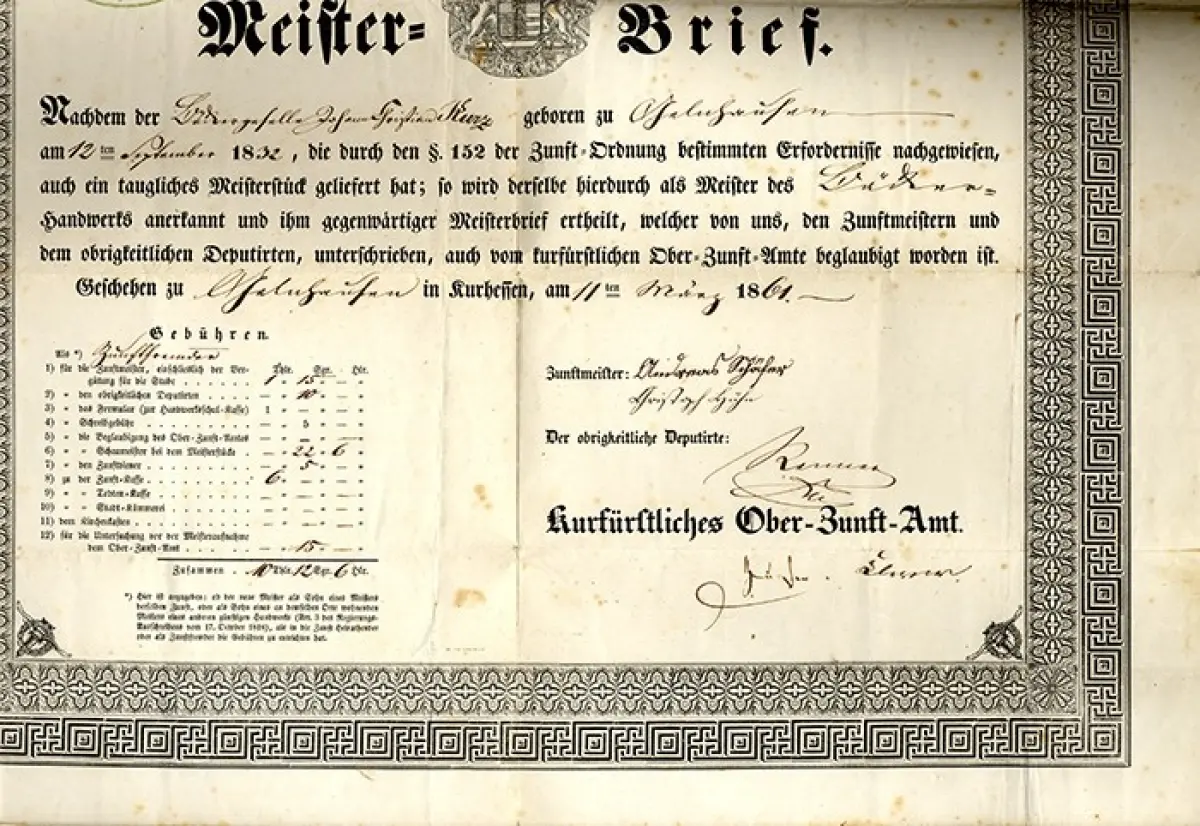 Meister- Brief.
Nachdem der Bäckergeselle Johann Christian Kurz geboren zu Gelnhausen
am 12ten September 1832, die durch den §. 152 der Zunft-Ordnung bestimmten Erfordernisse nachgewiesen,
auch ein taugliches Meisterstück geliefert hat; so wird derselbe hierdurch als Meister des Bäcker-
Handwerks anerkannt und ihm gegenwärtiger Meisterbrief ertheilt, welcher von uns, den Zunftmeistern und
dem obrigkeitlichen Deputirten, unterschrieben, auch vom kurfürstlichen Ober-Zunft-Amte beglaubigt worden ist.
Geschehen zu Gelnhausen in Kurhessen, am 11ten März 1861.
Gebühren.
Als *) Zunftfremder
Thlr. Sgr. Hlr.
1) für die Zunftmeister, einschließlich der Ver-
gütung für die Stube 1 " 15 - "
2) " den obrigkeitlichen Deputirten - " 10 - "
3) " das Formular (zur Handwerkschul-Kasse) 1 " - " - "
4) " Schreibgebühr - " 5 - "
5) " die Beglaubigung des Ober-Zunft-Amtes - " - " - "
6) " Schaumeister bei dem Meisterstücke - " 22 " 6 "
7) " den Zunftdiener - " 5 - "
8) zu der Zunft-Kasse 6 " - " - "
9) " " Todten-Kasse - " - " - "
10) " " Stadt-Kämmerei - " - " - "
11) dem Kirchenkasten - " - " - "
12) für die Untersuchung vor der Meisteraufnahme
dem Ober-Zunft-Amt - " 15 - "
Zusammen 10 Thlr. 12 Sgr. 6 Hlr.
*) Hier ist anzugeben: ob der neue Meister als Sohn eines Meisters
derselben Zunft, oder als Sohn eines an demselben Orte wohnenden
Meisters eines anderen zünftigen Handwerks (Art. 3 des Regierungs-
Ausschreibens vom 17. October 1828), als in die Zunft Heirathender
oder als Zunftfremder die Gebühren zu entrichten hat.
Zunftmeister: Andreas Schäfer
Christoph Huhn
Der obrigkeitliche Deputirte:
Kurfürstliches Ober-Zunft-Amt.